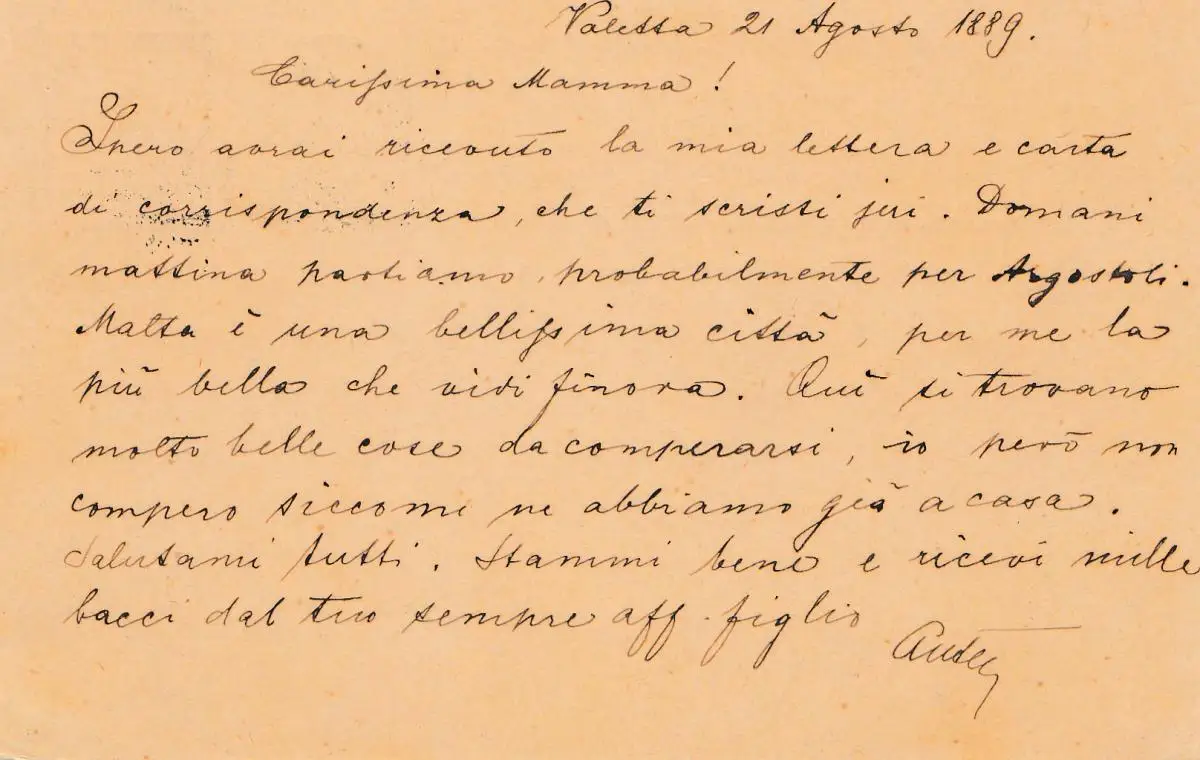 Valetta 21 Agosto 1889.
Carissima Mamma!
Spero avrai ricevuto la mia lettera e carta
di corrispondenza, che ti scristi jeri. Domani
mattina partiamo, probabilmente per Argostoli.
Malta è una bellissima città, per me la
più bella che vidi finora. Quì si trovano
molto belle cose da comperarsi, io però non
compero siccome ne abbiamo già a casa.
Salutami tutti. Stammi bene e ricevi mille
bacci dal tuo sempre aff. figlio